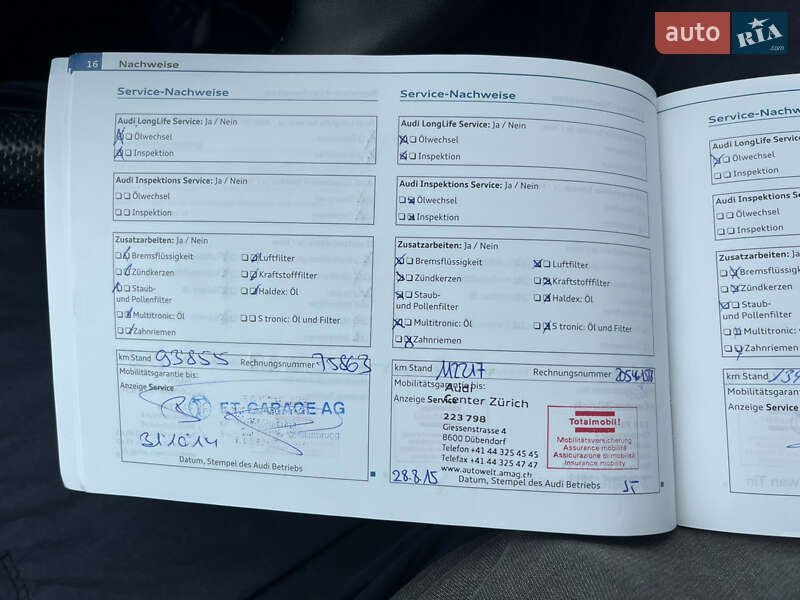 auto RIA .com
16 Nachweise
Service-Nachweise
Audi LongLife Service: Ja / Nein
Ölwechsel
Inspektion
Audi Inspektions Service: Ja / Nein
Ölwechsel
Inspektion
Zusatzarbeiten: Ja / Nein
Bremsflüssigkeit
Luftfilter
Zündkerzen
Kraftstofffilter
Staub-
und Pollenfilter
Haldex: Öl
Multitronic: Öl
S tronic: Öl und Filter
Zahnriemen
km Stand 93855 Rechnungsnummer 75863
Mobilitätsgarantie bis:
Anzeige Service
GARAGE AG
31.10.14
Datum, Stempel des Audi Betriebs
Service-Nachweise
Audi LongLife Service: Ja / Nein
Ölwechsel
Inspektion
Audi Inspektions Service: Ja / Nein
Ölwechsel
Inspektion
Zusatzarbeiten: Ja / Nein
Bremsflüssigkeit
Luftfilter
Zündkerzen
Kraftstofffilter
Staub-
und Pollenfilter
Haldex: Öl
Multitronic: Öl
S tronic: Öl und Filter
Zahnriemen
km Stand 112217 Rechnungsnummer
Mobilitätsgarantie bis:
Anzeige Service
Audi
Center Zürich
223 798
Giessenstrasse 4
8600 Dübendorf
Telefon +41 44 325 45 45
Telefax +41 44 325 47 47
www.autowelt.amag.ch
Totalmobil!
Mobilitätsversicherung
Assurance mobilité
Assicurazione di mobilità
Insurance mobility
28.8.15 Datum, Stempel des Audi Betriebs
Service-Nachw
Audi LongLife Service:
Ölwechsel
Inspektion
Audi Inspektions Service:
Ölwechsel
Inspektion
Zusatzarbeiten: Ja
Bremsflüssigkei
Zündkerzen
Staub-
und Pollenfilter
Multitronic: Öl
Zahnriemen
km Stand
Mobilitätsgarant
Anzeige Service
Datum